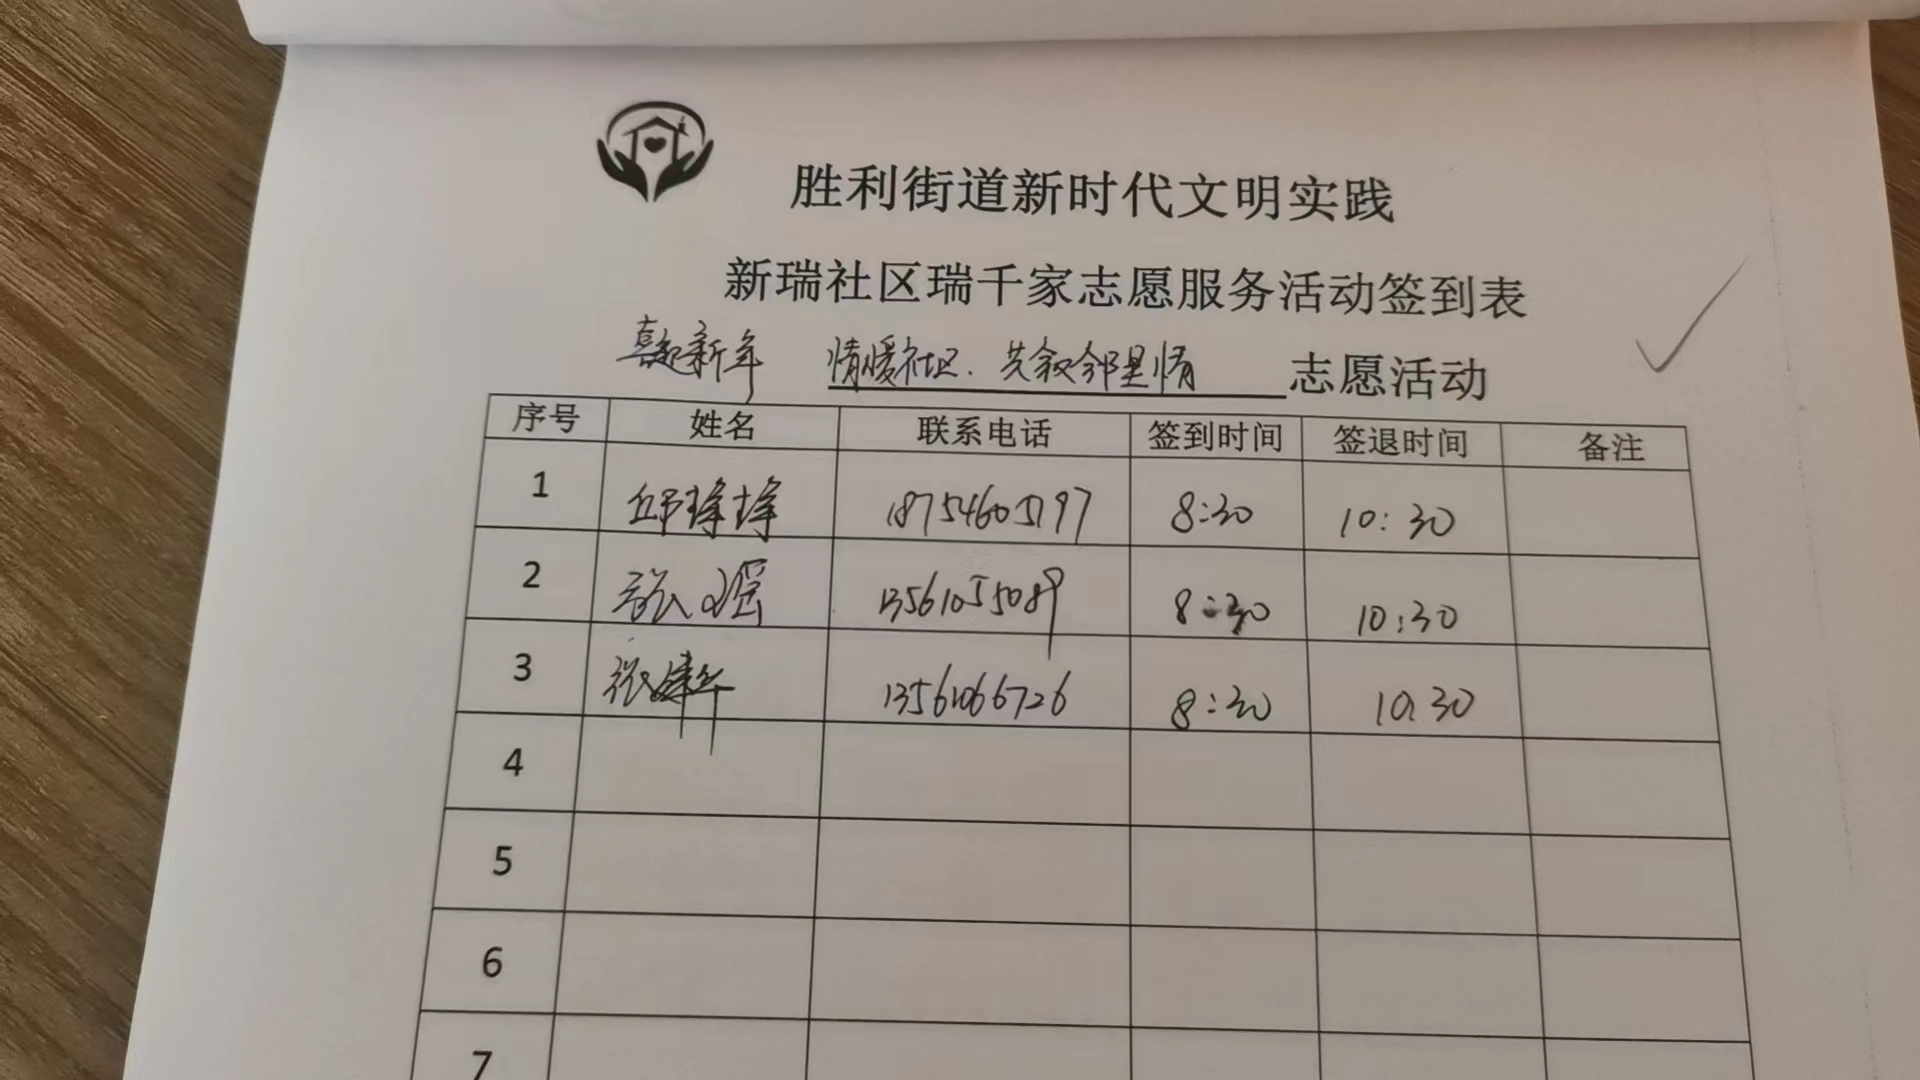 胜利街道新时代文明实践
新瑞社区瑞千家志愿服务活动签到表
喜迎新年 情暖社区、共叙邻里情 志愿活动
序号 姓名 联系电话 签到时间 签退时间 备注
1 邱琫琫 18754605797 8:30 10:30
2 张瑶 13561055089 8:30 10:30
3 张建华 13561066726 8:30 10:30
4
5
6
7